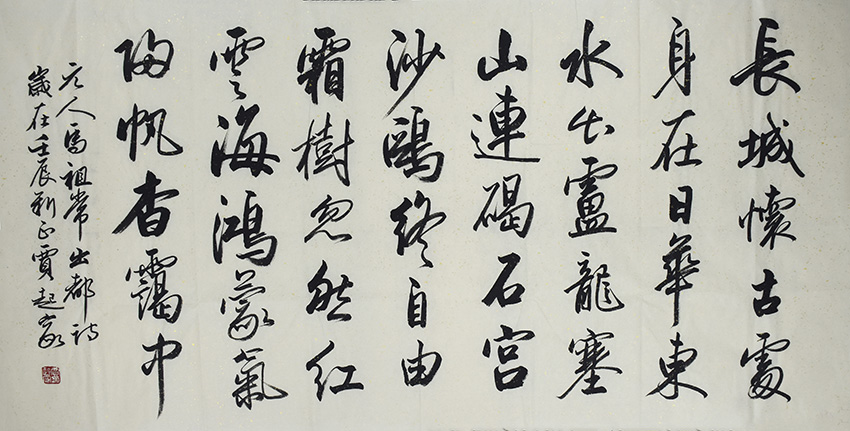 長城懷古處
身在日華東
水出盧龍塞
山連碣石宮
沙鷗終自由
霜樹忽然紅
雲海鴻蒙氣
歸帆杳靄中
元人馬祖常出都詩
歲在壬辰新正賈起家